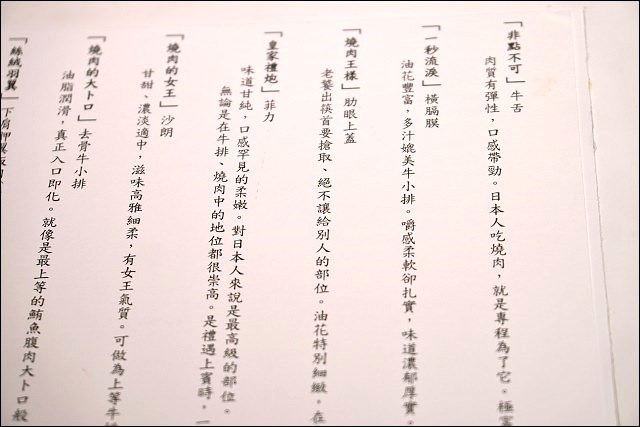 「非點不可」牛舌
肉質有彈性，口感帶勁。日本人吃燒肉，就是專程為了它。極
「一秒流淚」橫膈膜
油花豐富，多汁媲美牛小排。嚼感柔軟卻扎實，味道濃郁厚實。
「燒肉王樣」肋眼上蓋
老饕出筷首要搶取、絕不讓給別人的部位。油花特別細緻。在
「皇家禮炮」菲力
味道甘純，口感罕見的柔嫩。對日本人來說是最高級的部位。
無論是在牛排、燒肉中的地位都很崇高。是禮遇上賓時，一
「燒肉的女王」沙朗
甘甜、濃淡適中，滋味高雅細柔，有女王氣質。可做為上等牛排
「燒肉的大トロ」去骨牛小排
油脂潤滑，真正入口即化。就像是最上等的鮪魚腹肉大トロ般
「絲絨羽翼」下肩胛翼板肉